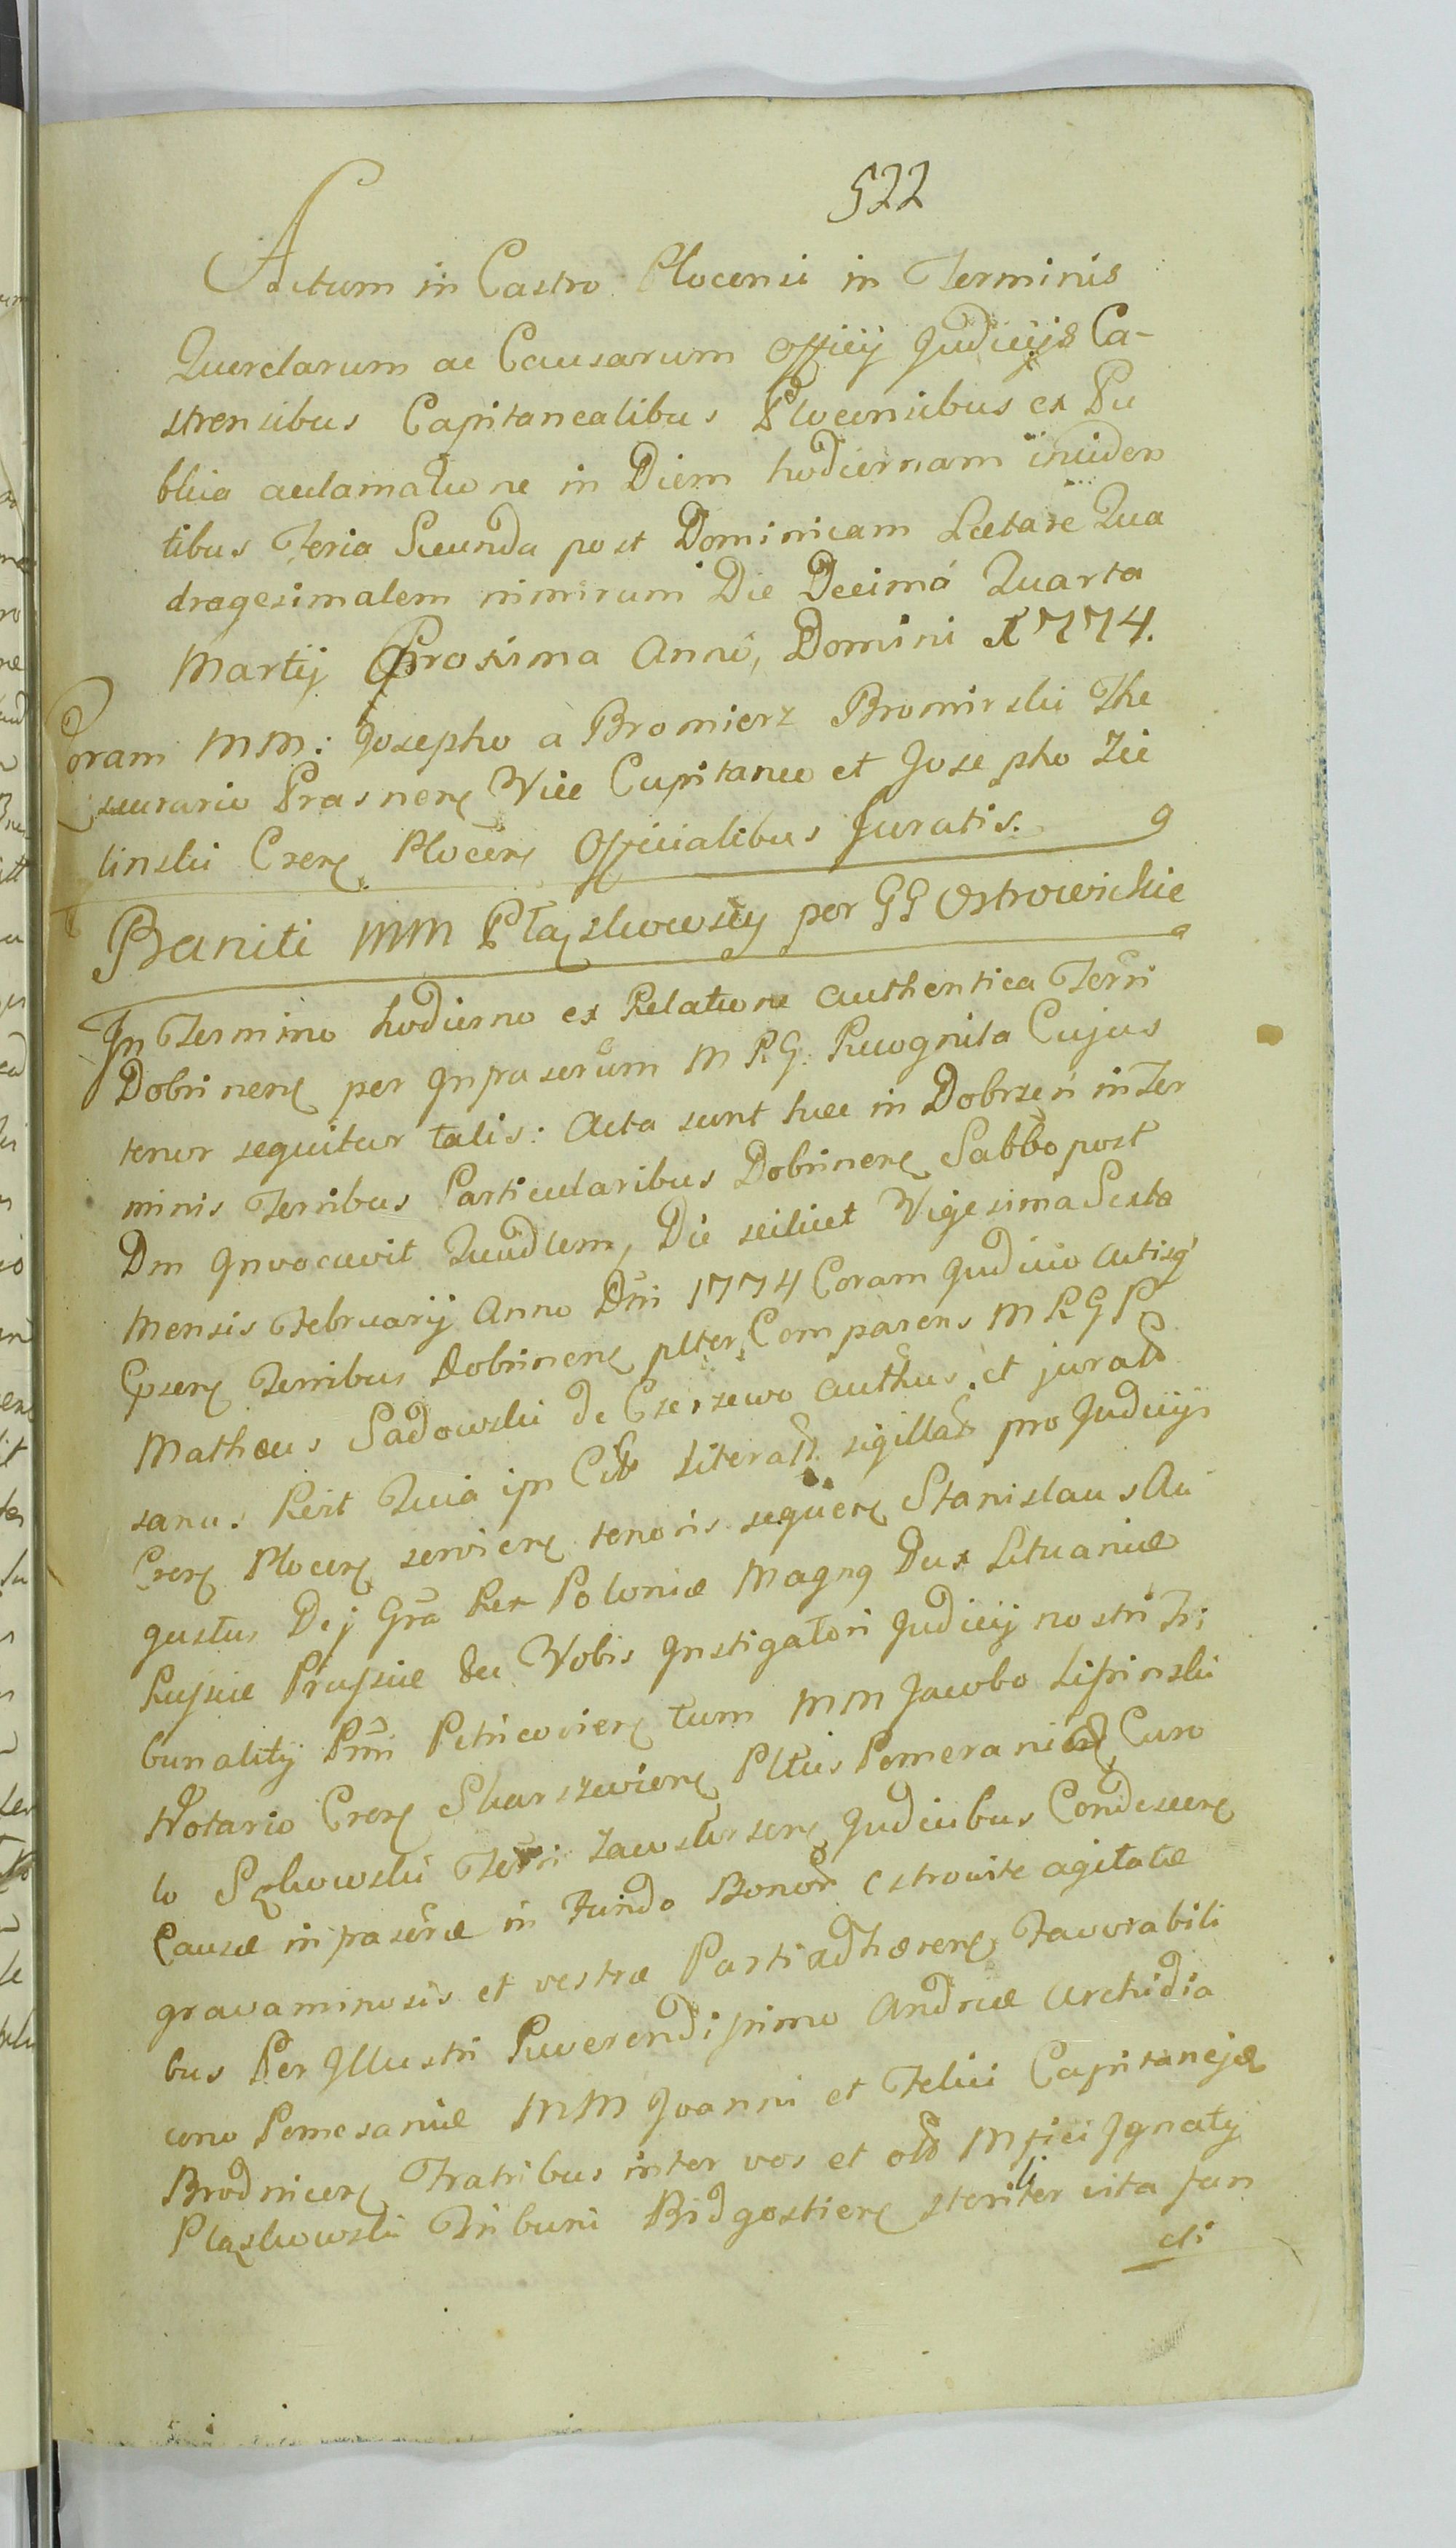 522
Actum in Castro Plocensi in Terminis
Querelarum ac Causarum Officij Judicijs Ca-
strensibus Capitanealibus Plocensibus ex Pu
blica acclamatione in Diem hodiernam inciden
tibus Feria Secunda post Dominicam Laetare Qua
dragesimalem nimirum Die Decimá Quarta
Martij Proxima Anno, Domini 1774.
Coram MM: Josepho a Bromierz Bromirski The
saurario Prasnen Vice Capitaneo et Josepho Zie
linski Cren Plocen Officialibus Juratis.
Baniti MM Płąskowscy per GG Ostrowickie
In Termino hodierno ex Relatione authentica Terri
Dobrinen per Infrascrum MRG. Recognita Cujus
tenor sequitur talis: Acta sunt haec in Dobrzyń in Ter
minis Terribus Particularibus Dobrinen Sabbo post
Dm Invocavit Quadlem, Die scilicet Vigesima Sexta
Mensis February Anno Dni 1774 Coram Judicio Actisq
Epsen Terribus Dobrinen plter Comparens MRGP
Mathæus Sadowski de Czerzewo authus et jurat
sanus Rcit Quia ipn Citt Literatt sigillatt pro Judicijs
Cren Plocen servien tenoris sequen Stanislaus Au
gustus Dej Gra Rex Poloniæ Magnq Dux Lituaniæ
Russiæ Prussiæ &c Vobis Instigatori Judicij nostri Tri
bunality Pmi Petricovien tum MM Jacobo Lipinski
Notario Cren Skarszewien Pltuis Pomeranien Caro
lo Sękowski Terri Zawskrzen Judicibus Condescen
Causæ infrascræ in Fundo Bonorr Ostrowite agitatæ
gravaminosis et vestræ Parti adhæren Favorabili
bus Per Illustri Reverendissimo Andreæ Archidia
cono Pomesaniæ MM Joanni et Felici Capitanejdæ
Brodnicen Fratribus inter vos et olb Mfici Ignaty
Plaskowski Tribuni Bidgostien sterilter vita fun
cti